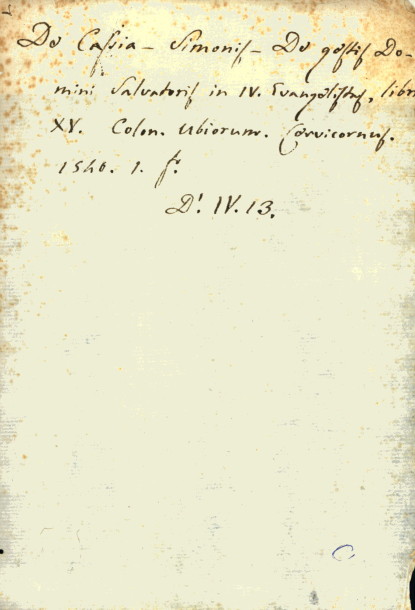 De Cassia – Simonis – De gestis Do-
mini Salvatoris in IV. Evangelistas, libri
XV. Colon. Ubiorum. Cervicornus.
1540. 1. f°.
D! IV. 13.